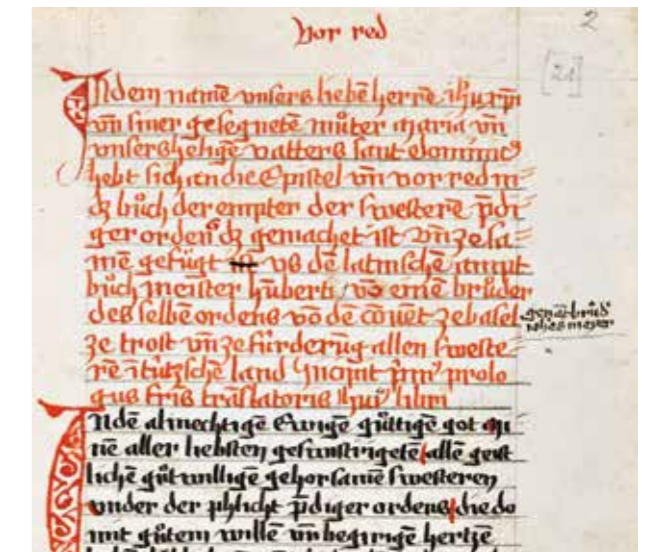 Vor red
2
[21]
In dem namē vnsers liebē herrē ihū xp̄i
vn̄ siner gesegnetē můter maria vn̄
vnsers heligē vatters sant dominic9
hebt sich an die Epistel vn̄ vor red in
dz bůch der empter der swesterē p̄di
ger ordens dz gemachet ist vn̄ ze sa
mē gefügt vs dē latinschē ampt
bůch meister hūberti vō einē brůder
des selbē ordens vō dē cōuēt ze basel
genāt brůd
ze trost vn̄ ze fürderūg allen sweste
rē ī tütschē land Incipit prim9 prolo
gus fr̄is trāslatoris
In dē almechtigē Ewigē gůttigē got
nē aller liebsten geswüstrigetē allē geist
lichē gůt willige gehorsamē swesteren
vnder der phlicht p̄diger ordens die do
mit gůtem willē vn̄ begirigē hertzē